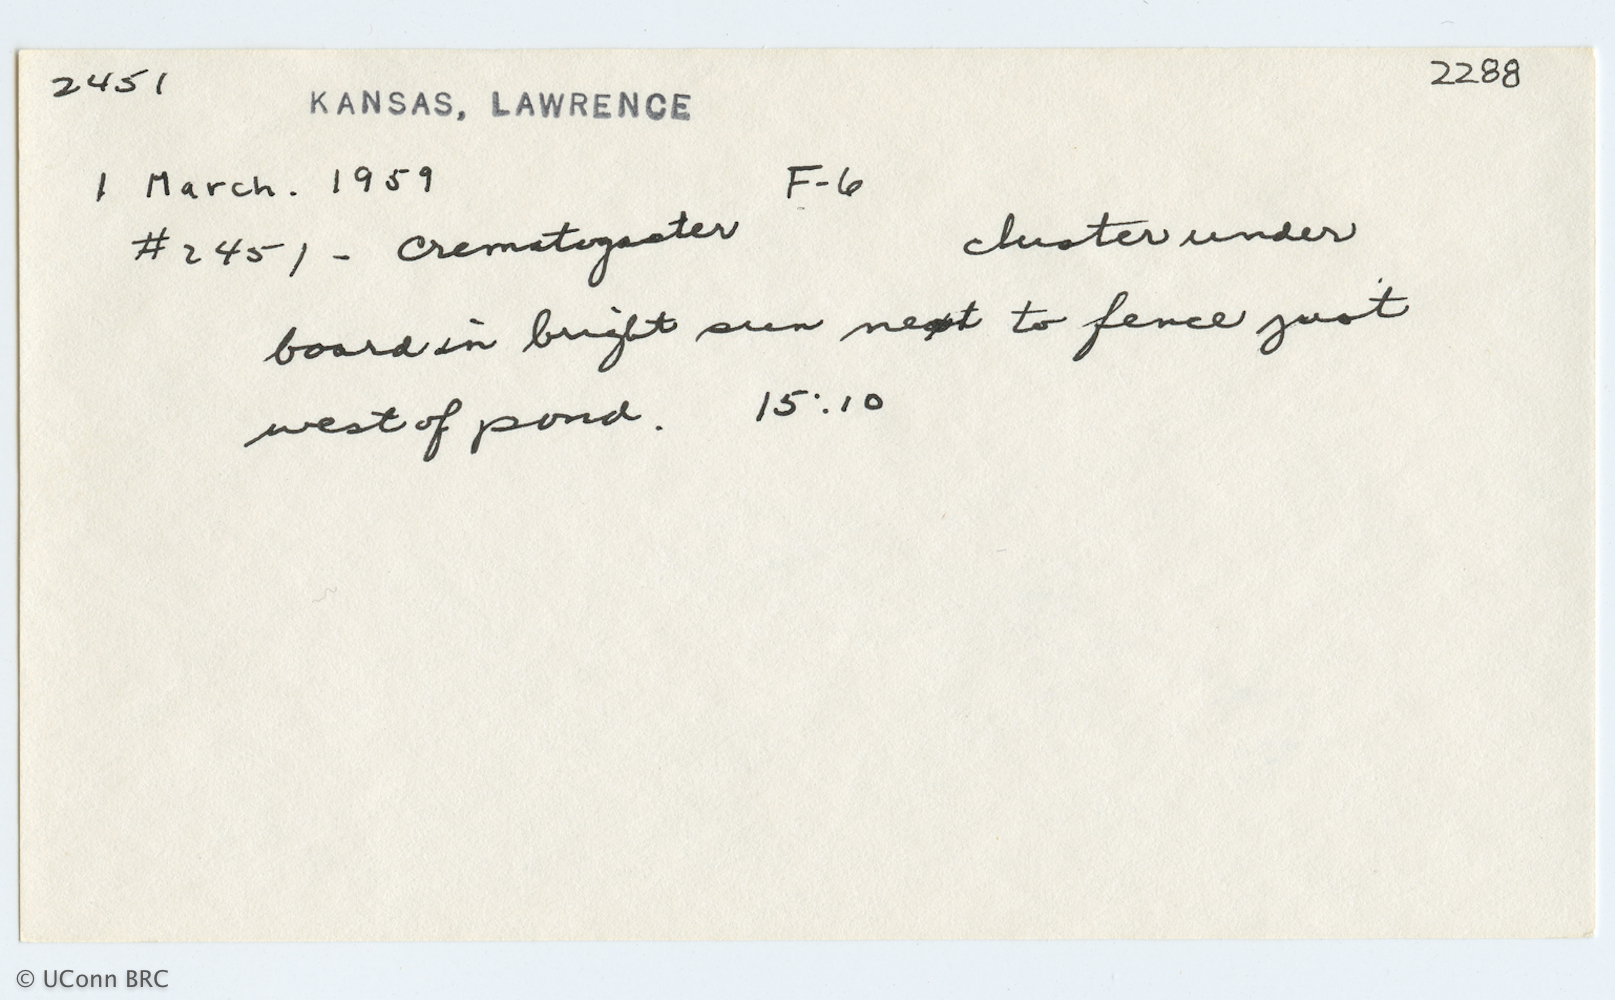 2451
2288
KANSAS, LAWRENCE
1 March. 1959 F-6
#2451 - Crematogaster cluster under
board in bright sun next to fence just
west of pond. 15:10
© UConn BRC